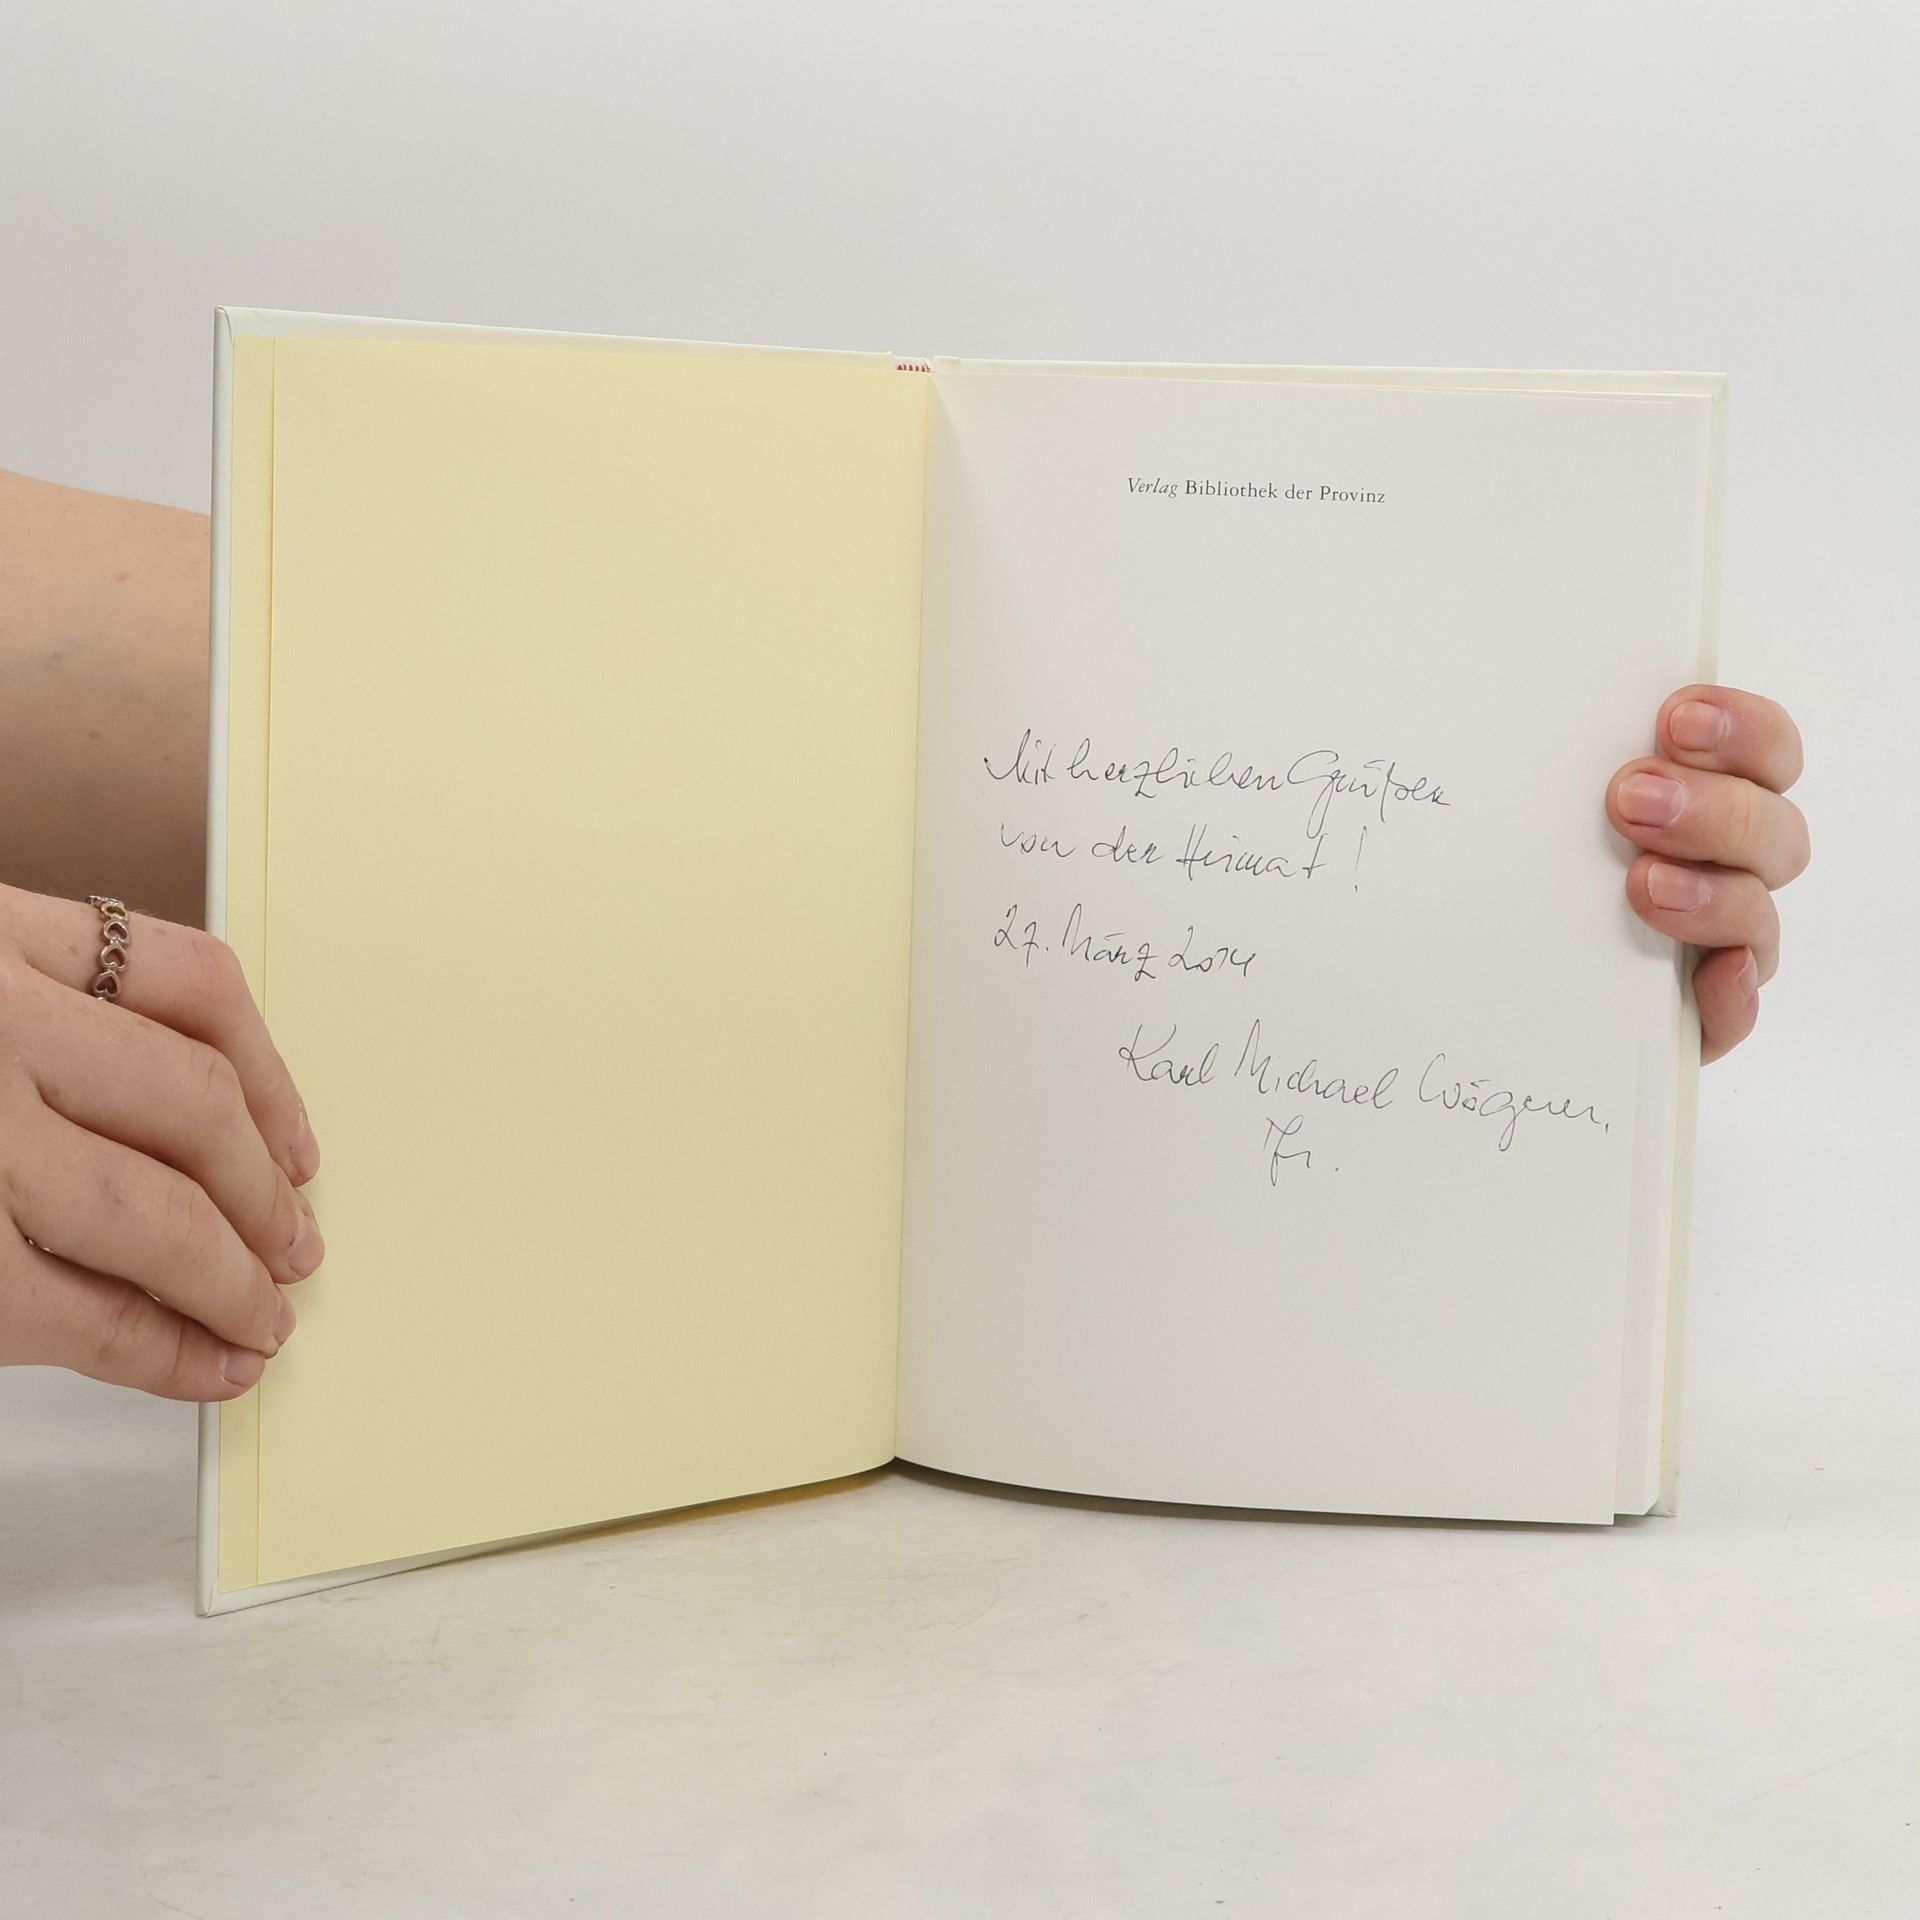 Verlag Bibliothek der Provinz
Mit herzlichen Grüßen
von der Heimat!
27. März 2014
Karl Michael Wögerer,
Jr.